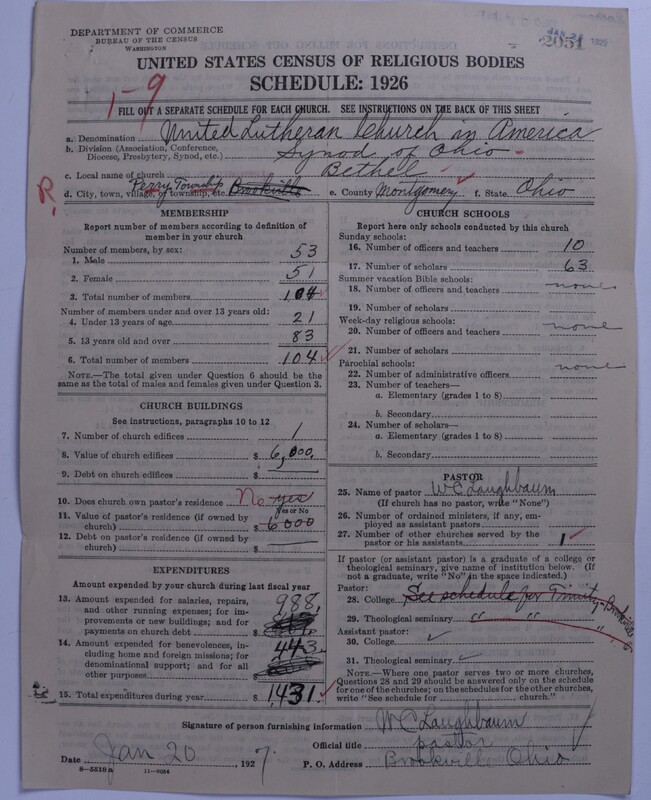 DEPARTMENT OF COMMERCE
BUREAU OF THE CENSUS
WASHINGTON
2051
UNITED STATES CENSUS OF RELIGIOUS BODIES
SCHEDULE: 1926
1-9
FILL OUT A SEPARATE SCHEDULE FOR EACH CHURCH. SEE INSTRUCTIONS ON THE BACK OF THIS SHEET
a. Denomination United Lutheran Church in America
b. Division (Association, Conference, Diocese, Presbytery, Synod, etc.) Synod of Ohio
c. Local name of church Bethel
R.
d. City, town, village, or township, etc. Perry Township Brookville e. County Montgomery f. State Ohio
MEMBERSHIP
Report number of members according to definition of
member in your church
Number of members, by sex:
1. Male 53
2. Female 51
3. Total number of members 104
Number of members under and over 13 years old:
4. Under 13 years of age 21
5. 13 years old and over 83
6. Total number of members 104
NOTE.—The total given under Question 6 should be the
same as the total of males and females given under Question 3.
CHURCH BUILDINGS
See instructions, paragraphs 10 to 12
7. Number of church edifices 1
8. Value of church edifices $ 6,000.
9. Debt on church edifices $
10. Does church own pastor's residence No yes
Yes or No
11. Value of pastor's residence (if owned by
church) $ 6000
12. Debt on pastor's residence (if owned by
church) $
EXPENDITURES
Amount expended by your church during last fiscal year
13. Amount expended for salaries, repairs,
and other running expenses; for im-
provements or new buildings; and for
payments on church debt $ 988.
14. Amount expended for benevolences,
including home and foreign missions; for
denominational support; and for all
other purposes $ 443
15. Total expenditures during year $ 1431
CHURCH SCHOOLS
Report here only schools conducted by this church
Sunday schools:
16. Number of officers and teachers 10
17. Number of scholars 63
Summer vacation Bible schools:
18. Number of officers and teachers none
19. Number of scholars
Week-day religious schools:
20. Number of officers and teachers none
21. Number of scholars
Parochial schools:
22. Number of administrative officers none
23. Number of teachers—
a. Elementary (grades 1 to 8)
b. Secondary
24. Number of scholars—
a. Elementary (grades 1 to 8)
b. Secondary
PASTOR
25. Name of pastor W C Laughbaum
(If church has no pastor, write "None")
26. Number of ordained ministers, if any, em-
ployed as assistant pastors
27. Number of other churches served by the
pastor or his assistants 1
If pastor (or assistant pastor) is a graduate of a college or
theological seminary, give name of institution below. (If
not a graduate, write "No" in the space indicated.)
Pastor:
28. College See schedule for Trinity - Brookville
29. Theological seminary " " "
Assistant pastor:
30. College
31. Theological seminary
NOTE.—Where one pastor serves two or more churches,
Questions 28 and 29 should be answered only on the schedule
for one of the churches; on the schedules for the other churches,
write "See schedule for church."
Signature of person furnishing information W C Laughbaum
Official title pastor
Date Jan 20 1927. P. O. Address Brookville Ohio
8—5518a 11—9084